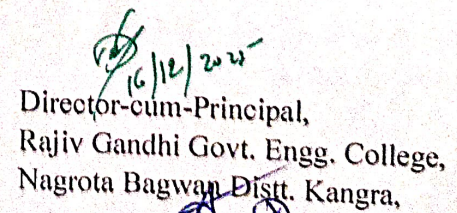 16/12/2025
Director-cum-Principal,
Rajiv Gandhi Govt. Engg. College,
Nagrota Bagwan Distt. Kangra,